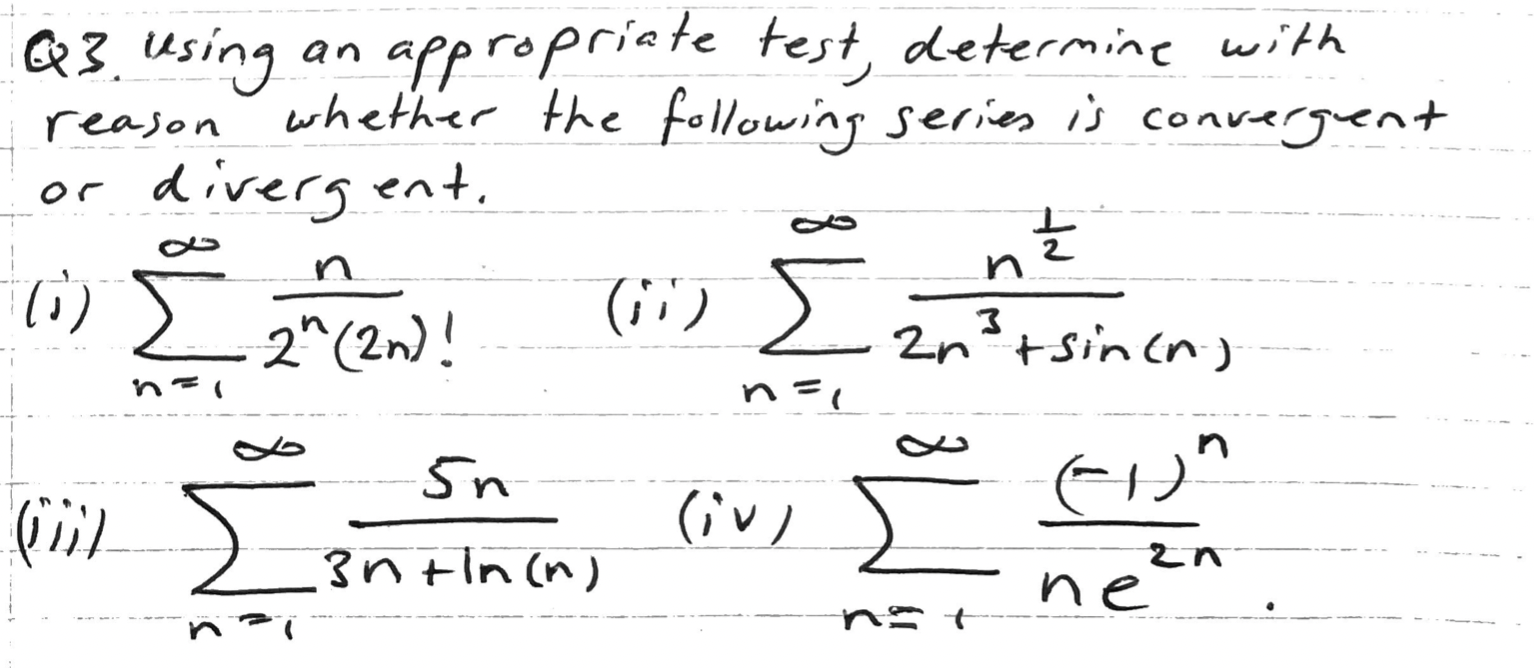 Q3. Using an appropriate test, determine with
reason whether the following series is convergent
or divergent.
(i) \sum_{n=1}^{\infty} \frac{n}{2^n (2n)!} (ii) \sum_{n=1}^{\infty} \frac{n^{\frac{1}{2}}}{2n^3 + \sin(n)}
(iii) \sum_{n=1}^{\infty} \frac{5n}{3n + \ln(n)} (iv) \sum_{n=1}^{\infty} \frac{(-1)^n}{n e^{2n}}.